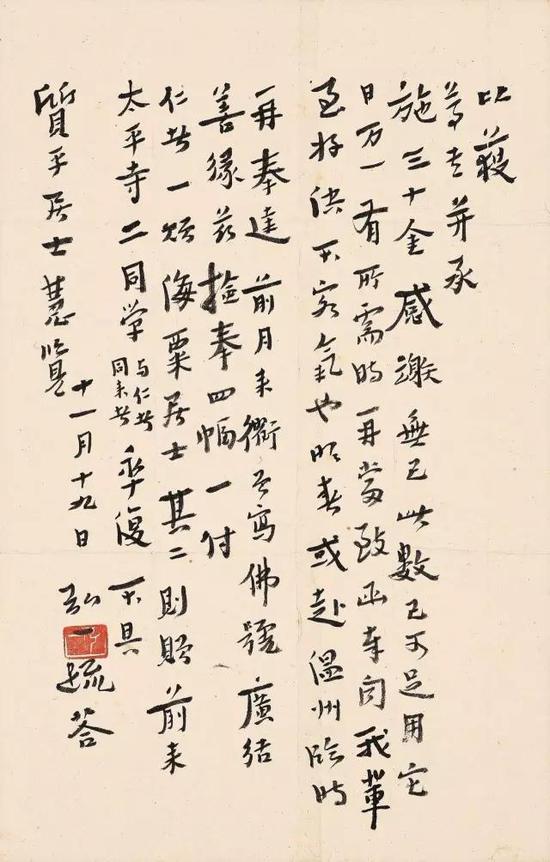 比獲
尊書并承
施三十金感謝無已此數已可足用它
日万一有所需時再當致函奉聞我輩
至好决不客氣也明春或赴温州臨時
再奉達前月来衢多寫佛號廣結
善緣兹撿奉四幅一付
仁者一貽海粟居士其二則貽前来
太平寺二同学与仁者同来者率復不具
質平居士慧覽
十一月十九日 弘一疏答